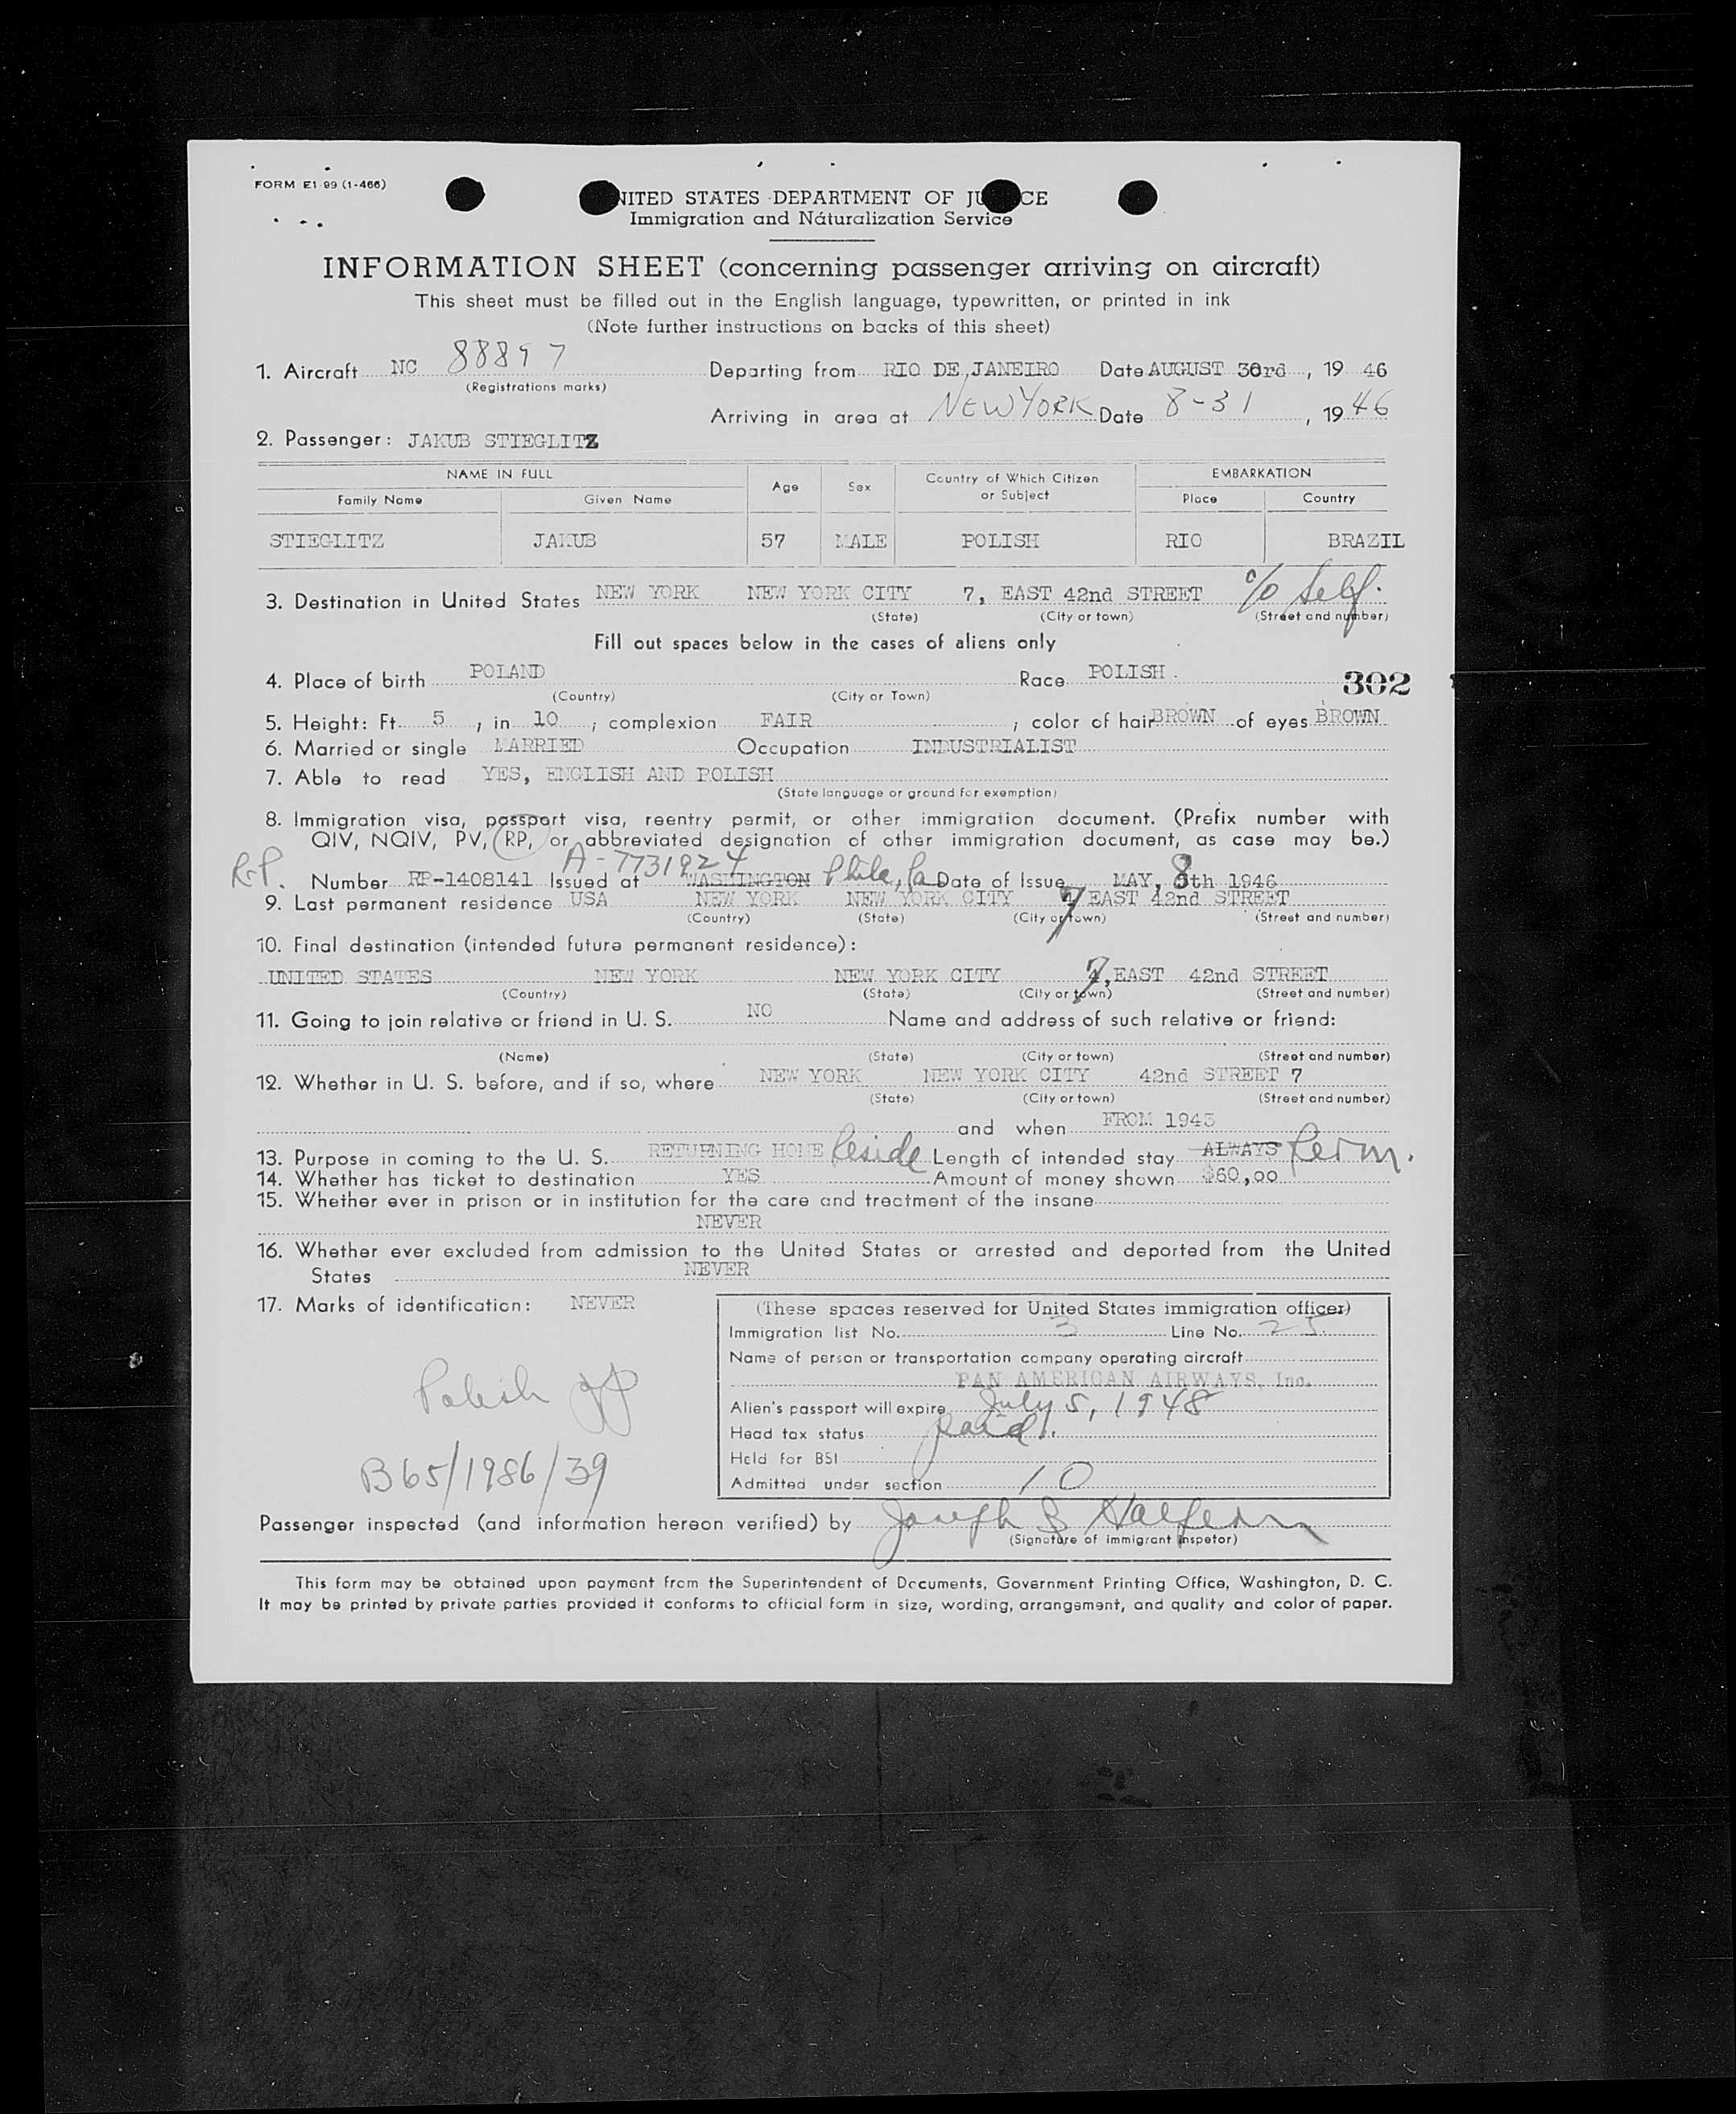 FORM E1-99 (1-466)
UNITED STATES DEPARTMENT OF JUSTICE
Immigration and Naturalization Service
INFORMATION SHEET (concerning passenger arriving on aircraft)
This sheet must be filled out in the English language, typewritten, or printed in ink
(Note further instructions on backs of this sheet)
1. Aircraft NC 88897 Departing from RIO DE JANEIRO Date AUGUST 30rd, 19 46
(Registrations marks)
Arriving in area at NEW YORK Date 8-31, 19 46
2. Passenger: JAKUB STIEGLITZ
NAME IN FULL Age Sex Country of Which Citizen or Subject EMBARKATION
Family Name Given Name Place Country
STIEGLITZ JAKUB 57 MALE POLISH RIO BRAZIL
3. Destination in United States NEW YORK NEW YORK CITY 7, EAST 42nd STREET c/o Self.
(State) (City or town) (Street and number)
Fill out spaces below in the cases of aliens only
4. Place of birth POLAND Race POLISH. 302
(Country) (City or Town)
5. Height: Ft. 5, in 10; complexion FAIR; color of hair BROWN of eyes BROWN
6. Married or single MARRIED Occupation INDUSTRIALIST
7. Able to read YES, ENGLISH AND POLISH
(State language or ground for exemption)
8. Immigration visa, passport visa, reentry permit, or other immigration document. (Prefix number with
QIV, NQIV, PV, RP, or abbreviated designation of other immigration document, as case may be.)
A-7731924
R.P. Number RP-1408141 Issued at WASHINGTON Phila, Pa Date of Issue MAY, 8th 1946
9. Last permanent residence USA NEW YORK NEW YORK CITY 7 EAST 42nd STREET
(Country) (State) (City or town) (Street and number)
10. Final destination (intended future permanent residence):
UNITED STATES NEW YORK NEW YORK CITY 7, EAST 42nd STREET
(Country) (State) (City or town) (Street and number)
11. Going to join relative or friend in U. S. NO Name and address of such relative or friend:
(Name) (State) (City or town) (Street and number)
12. Whether in U. S. before, and if so, where NEW YORK NEW YORK CITY 42nd STREET 7
(State) (City or town) (Street and number)
and when FROM 1943
13. Purpose in coming to the U. S. RETURNING HOME Reside Length of intended stay ALWAYS Perm.
14. Whether has ticket to destination YES Amount of money shown $60,00
15. Whether ever in prison or in institution for the care and treatment of the insane
NEVER
16. Whether ever excluded from admission to the United States or arrested and deported from the United
States NEVER
17. Marks of identification: NEVER
(These spaces reserved for United States immigration officer)
Immigration list No. 3 Line No. 25
Name of person or transportation company operating aircraft
PAN AMERICAN AIRWAYS, Inc.
Alien's passport will expire July 5, 1948
Head tax status paid.
Held for BSI
Admitted under section 10
Polish PP
B65/1986/39
Passenger inspected (and information hereon verified) by Joseph B Halpern
(Signature of immigrant inspetor)
This form may be obtained upon payment from the Superintendent of Documents, Government Printing Office, Washington, D. C.
It may be printed by private parties provided it conforms to official form in size, wording, arrangement, and quality and color of paper.